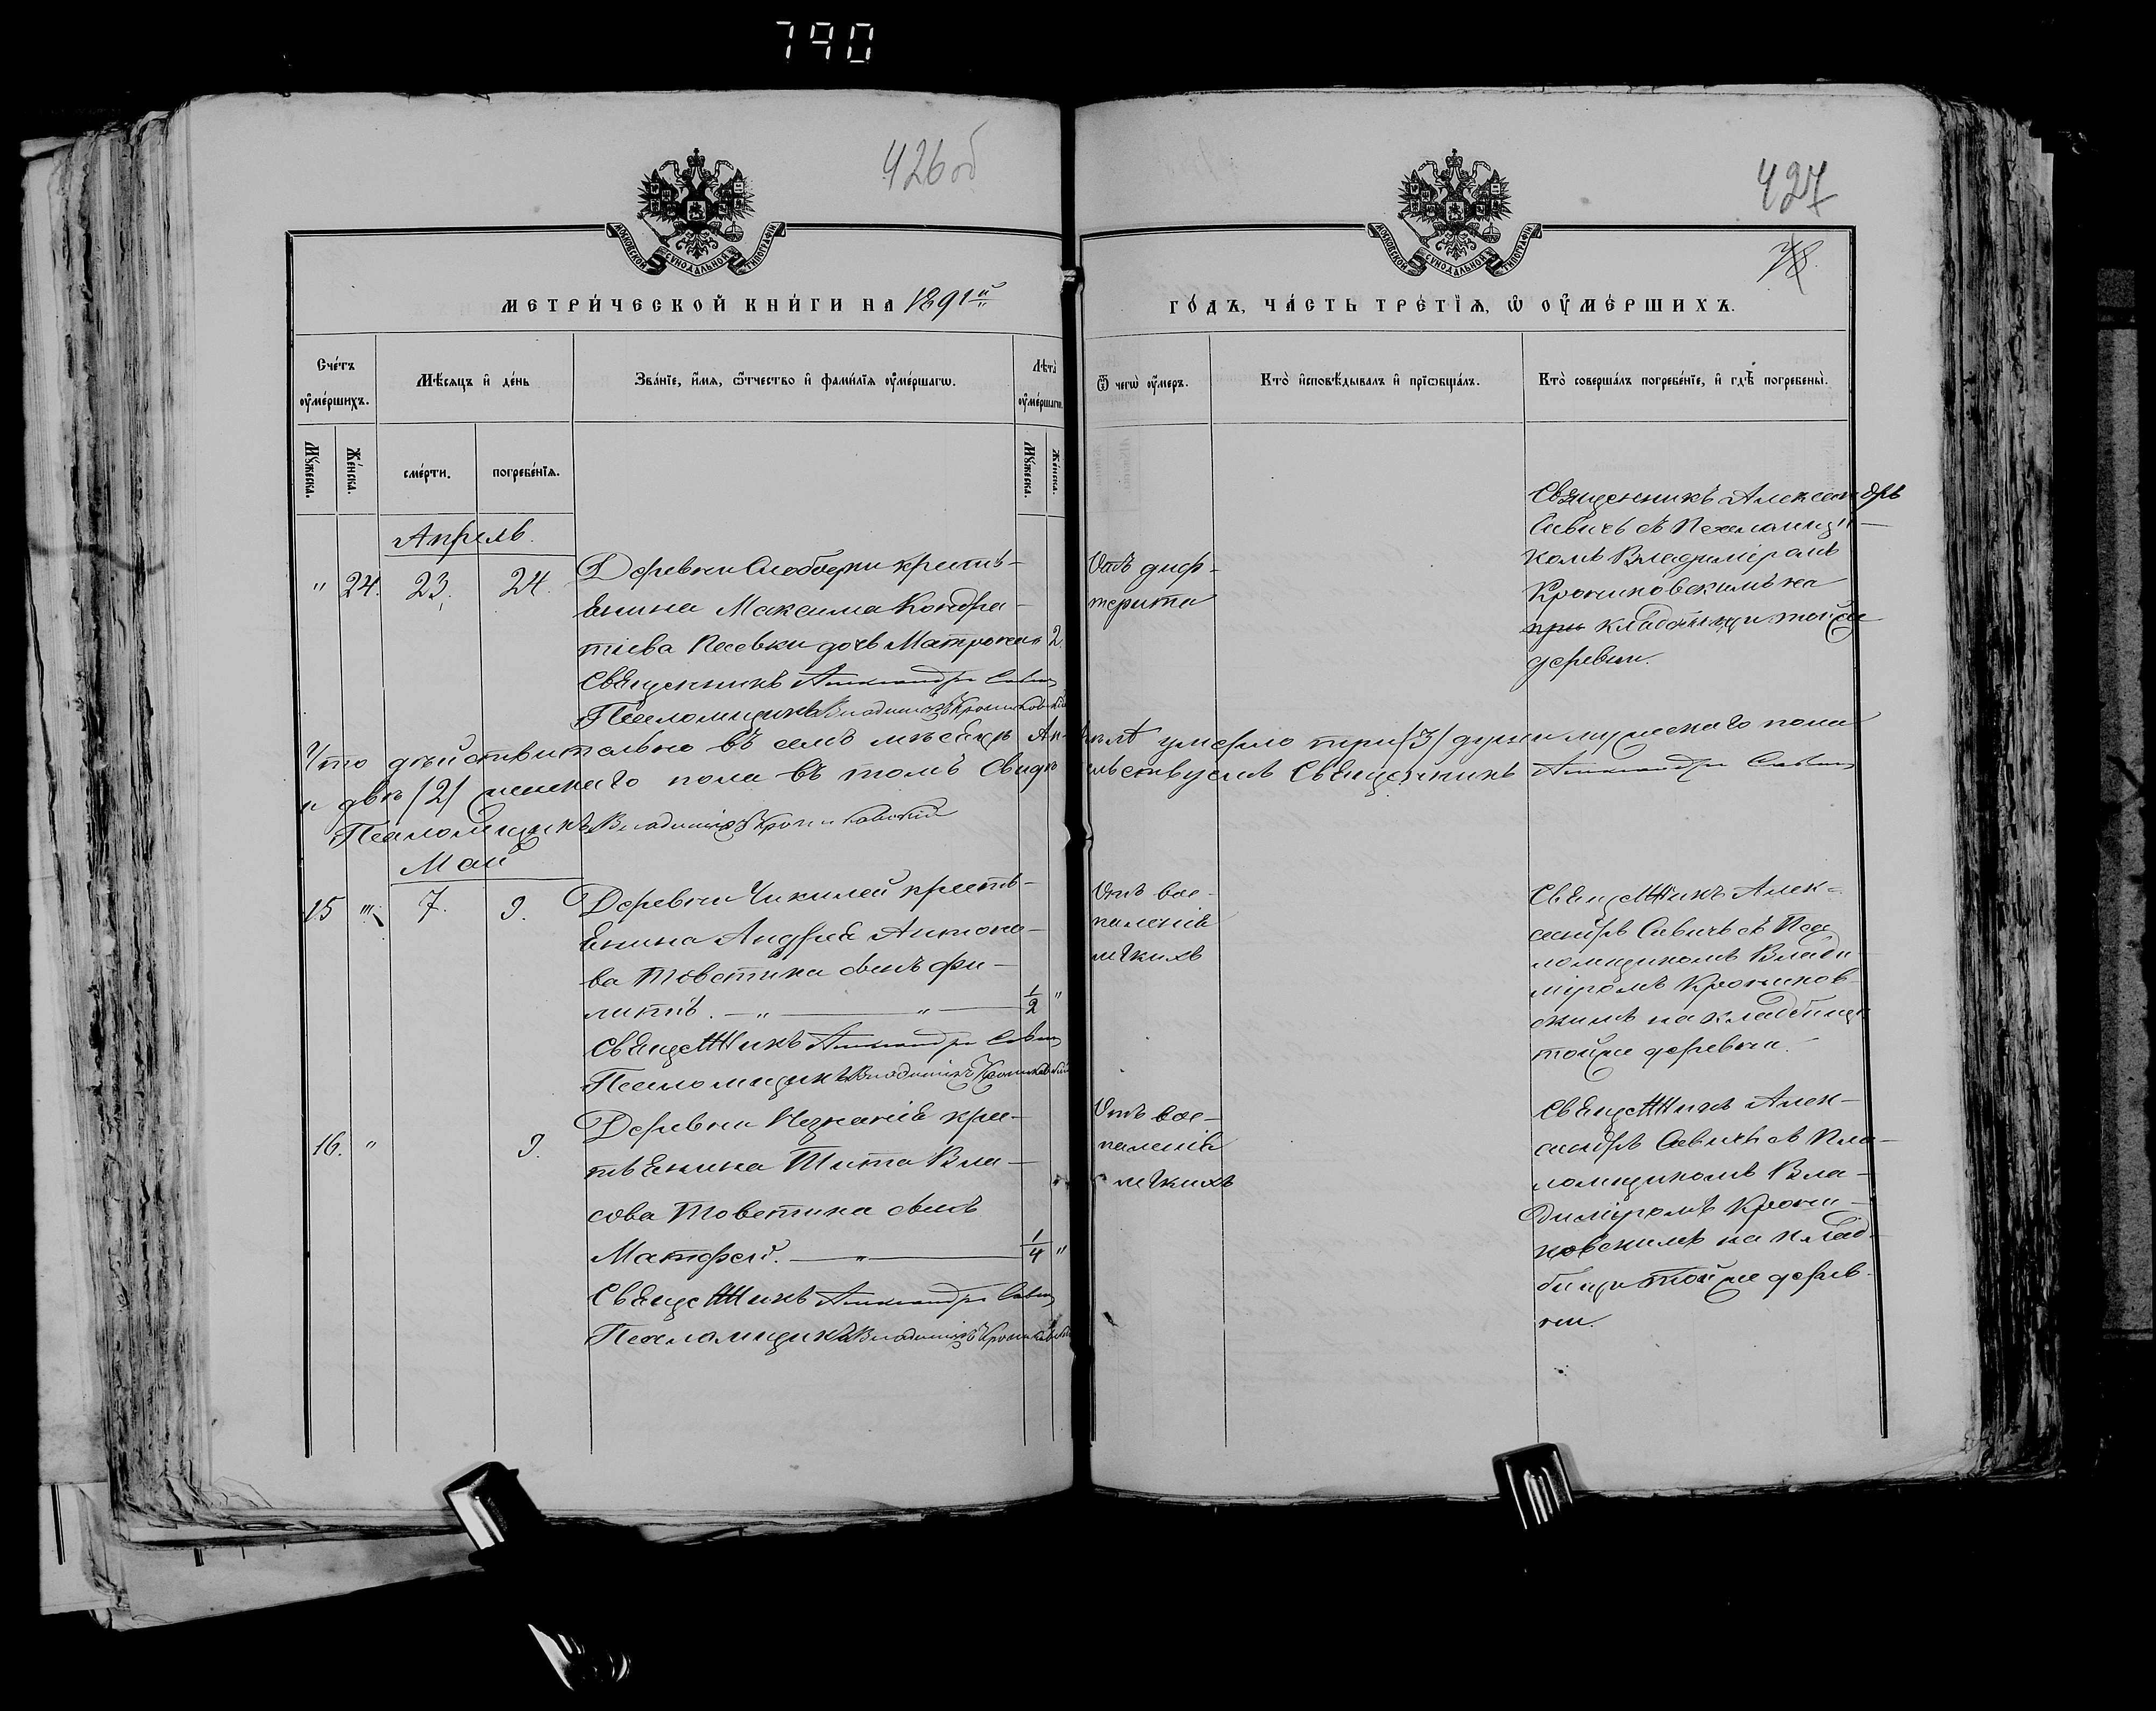 790
426 об
427
МОСКОВСКОЙ СѴНОДАЛЬНОЙ ТИПОГРАФІИ
МОСКОВСКОЙ СѴНОДАЛЬНОЙ ТИПОГРАФІИ
МЕТРИ́ЧЕСКОЙ КНИ́ГИ НА 1891й
ГО́ДЪ, ЧА́СТЬ ТРЕ́ТЇѦ, Ѡ ОУ҆МЕ́РШИХЪ.
Сче́тъ оу҆ме́ршихъ.
Мѣ́сяцъ и҆ де́нь
Зва́нїе, и҆́мя, ѻ҆́тчество и҆ фами́лїя оу҆ме́ршагѡ.
Лѣта̀ оу҆ме́ршагѡ
Ѿ чегѡ̀ оу҆́меръ.
Кто̀ и҆сповѣ́дывалъ и҆ прїѡбща́лъ.
Кто̀ соверша́лъ погребе́нїе, и҆ гдѣ̀ погребены̀.
Мꙋ́жеска.
Же́нска.
сме́рти.
погребе́нїя.
Мꙋ́жеска.
Же́нска.
Апрѣль.
" 24. 23. 24.
Деревни Слободки кресть-
янина Максима Кондра-
тіева дочь Матрона " 2
Священникъ Александръ Савичъ
Псаломщикъ Владиміръ
Отъ диф-
терита
Священникъ Александръ
Савичъ съ Псаломщи-
комъ Владиміромъ
на
при кладбищи тойже
деревни.
Что дѣйствительно въ семъ мѣсяцѣ Апрѣлѣ умерло три /3/ души мужескаго пола
и двѣ /2/ женскаго пола въ томъ свидѣтельствуемъ Священникъ Александръ Савичъ
Псаломщикъ Владиміръ
Май
15 " 7. 9.
Деревни Чикилей кресть-
янина Андрея Антоно-
ва Товстика сынъ Фи-
липпъ. — " — " — 1/2 "
Священникъ Александръ Савичъ
Псаломщикъ Владиміръ
Отъ вос-
паленія
легкихъ
Священникъ Алек-
сандръ Савичъ съ Пса-
ломщикомъ Влади-
міромъ
на кладбищѣ
тойже деревни.
16. " 9.
Деревни крес-
тьянина Тита Вла-
сова Товстика сынъ
Матфей. — " — 1/4 "
Священникъ Александръ Савичъ
Псаломщикъ Владиміръ
Отъ вос-
паленія
легкихъ
Священникъ Алек-
сандръ Савичъ съ Пса-
ломщикомъ Вла-
диміромъ
на клад-
бищи тойже дерев-
ни.